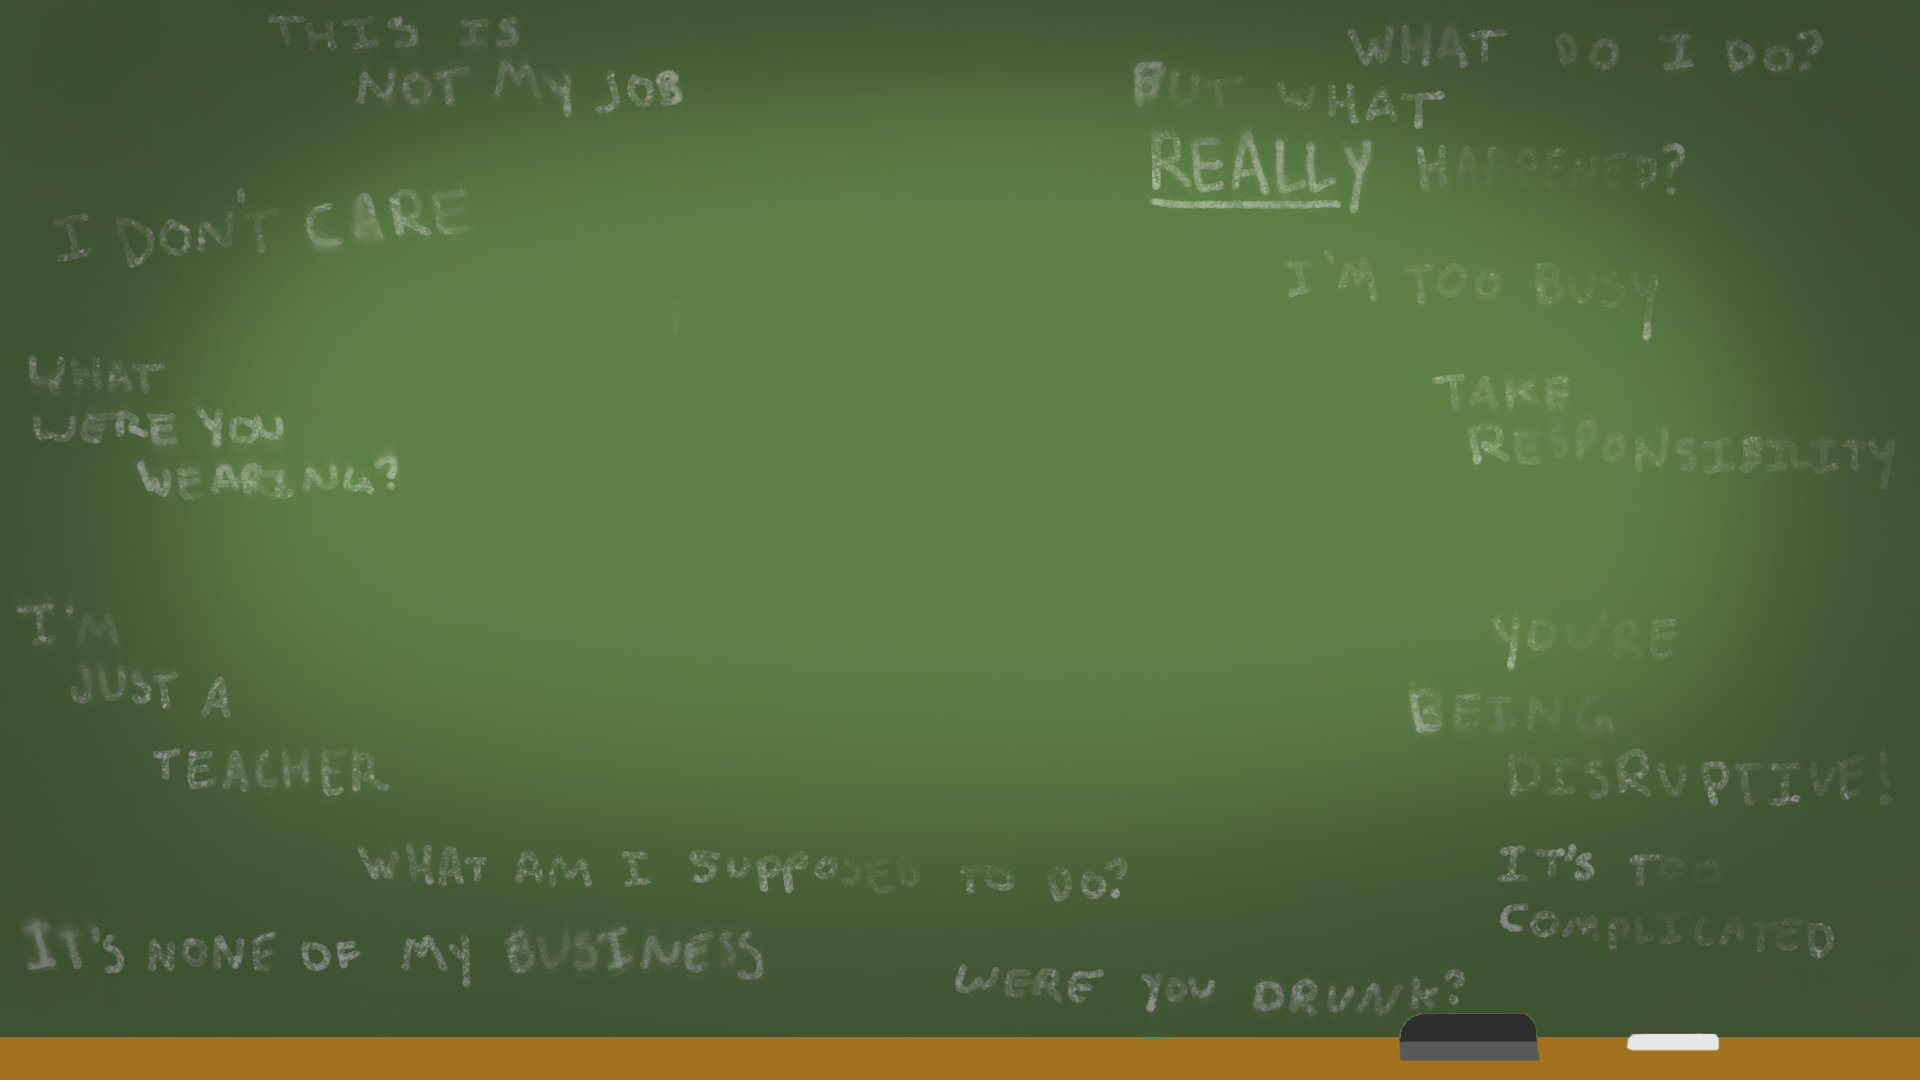 THIS IS
NOT MY JOB
WHAT DO I DO?
BUT WHAT
REALLY HAPPENED?
I DON'T CARE
I'M TOO BUSY
WHAT
WERE YOU
WEARING?
TAKE
RESPONSIBILITY
I'M
JUST A
TEACHER
YOU'RE
BEING
DISRUPTIVE!
WHAT AM I SUPPOSED TO DO?
IT'S TOO
COMPLICATED
IT'S NONE OF MY BUSINESS
WERE YOU DRUNK?